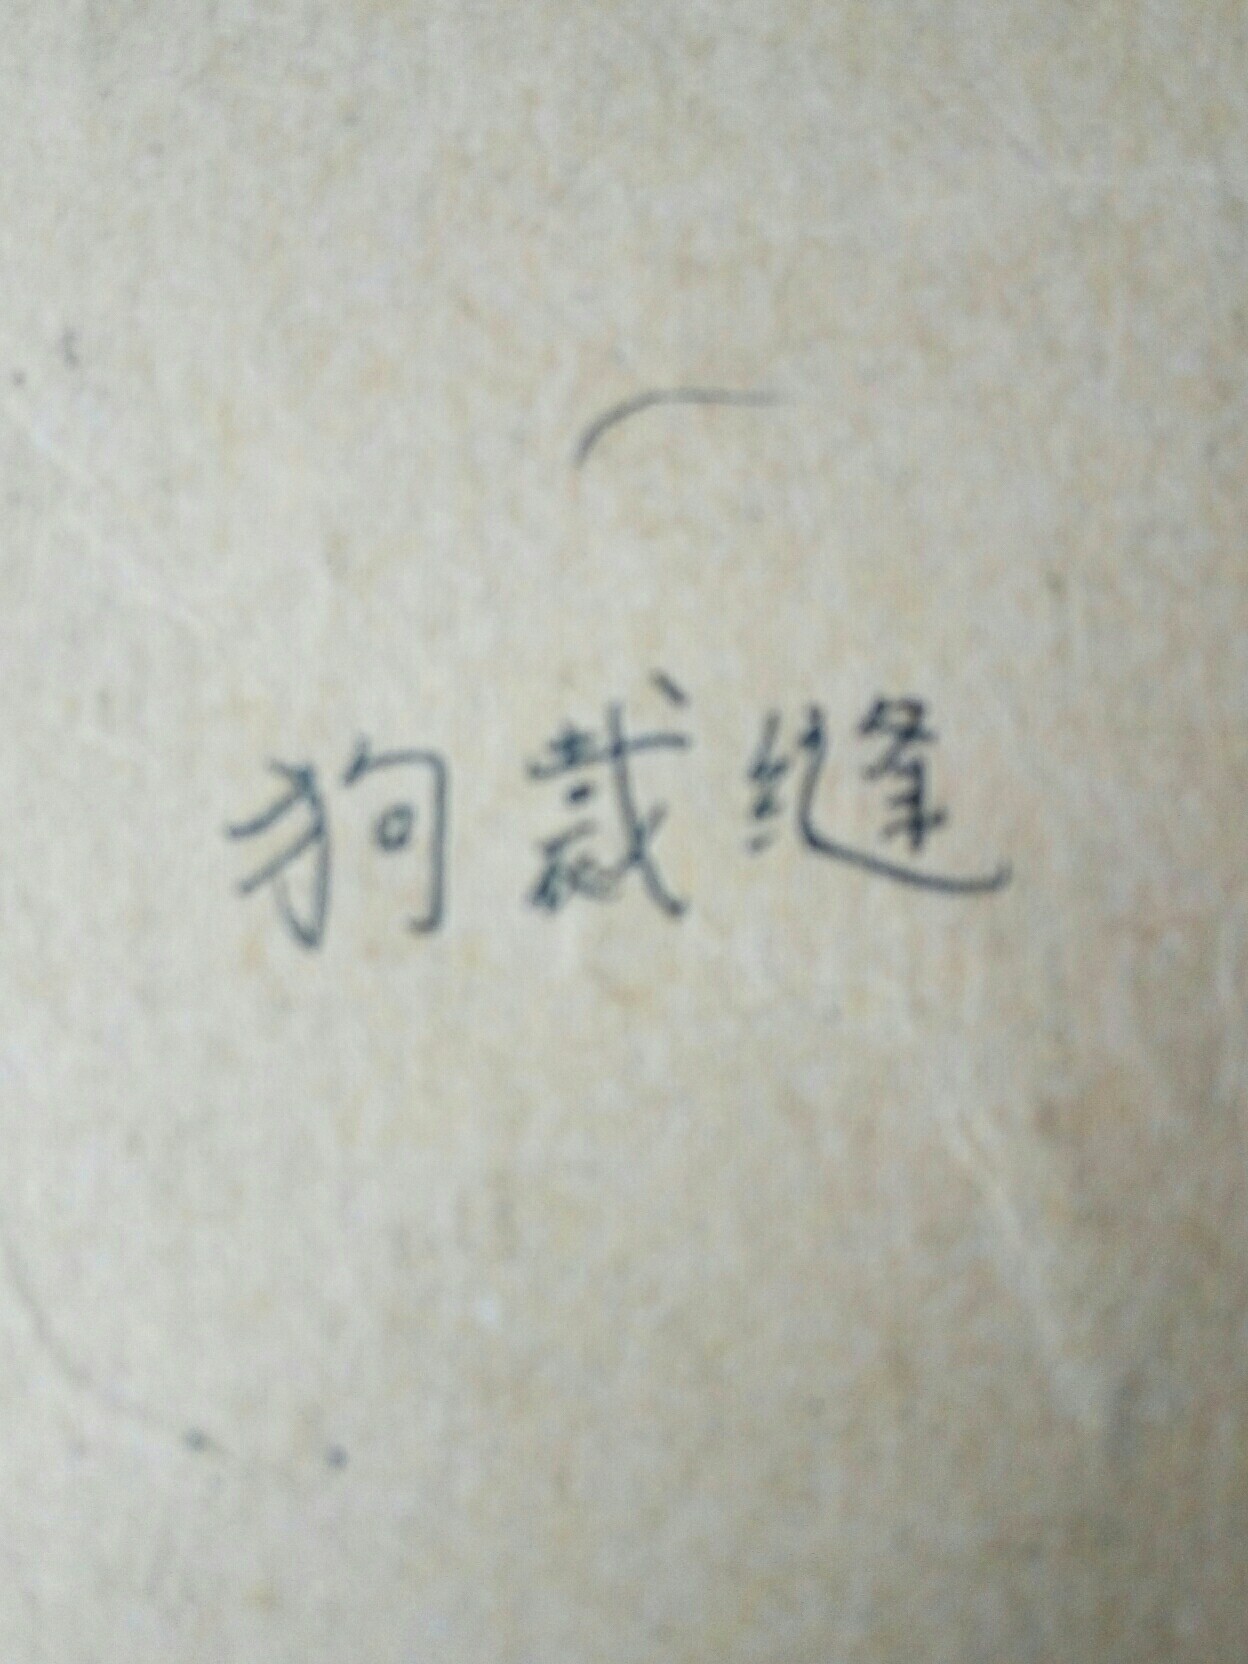 狗裁缝